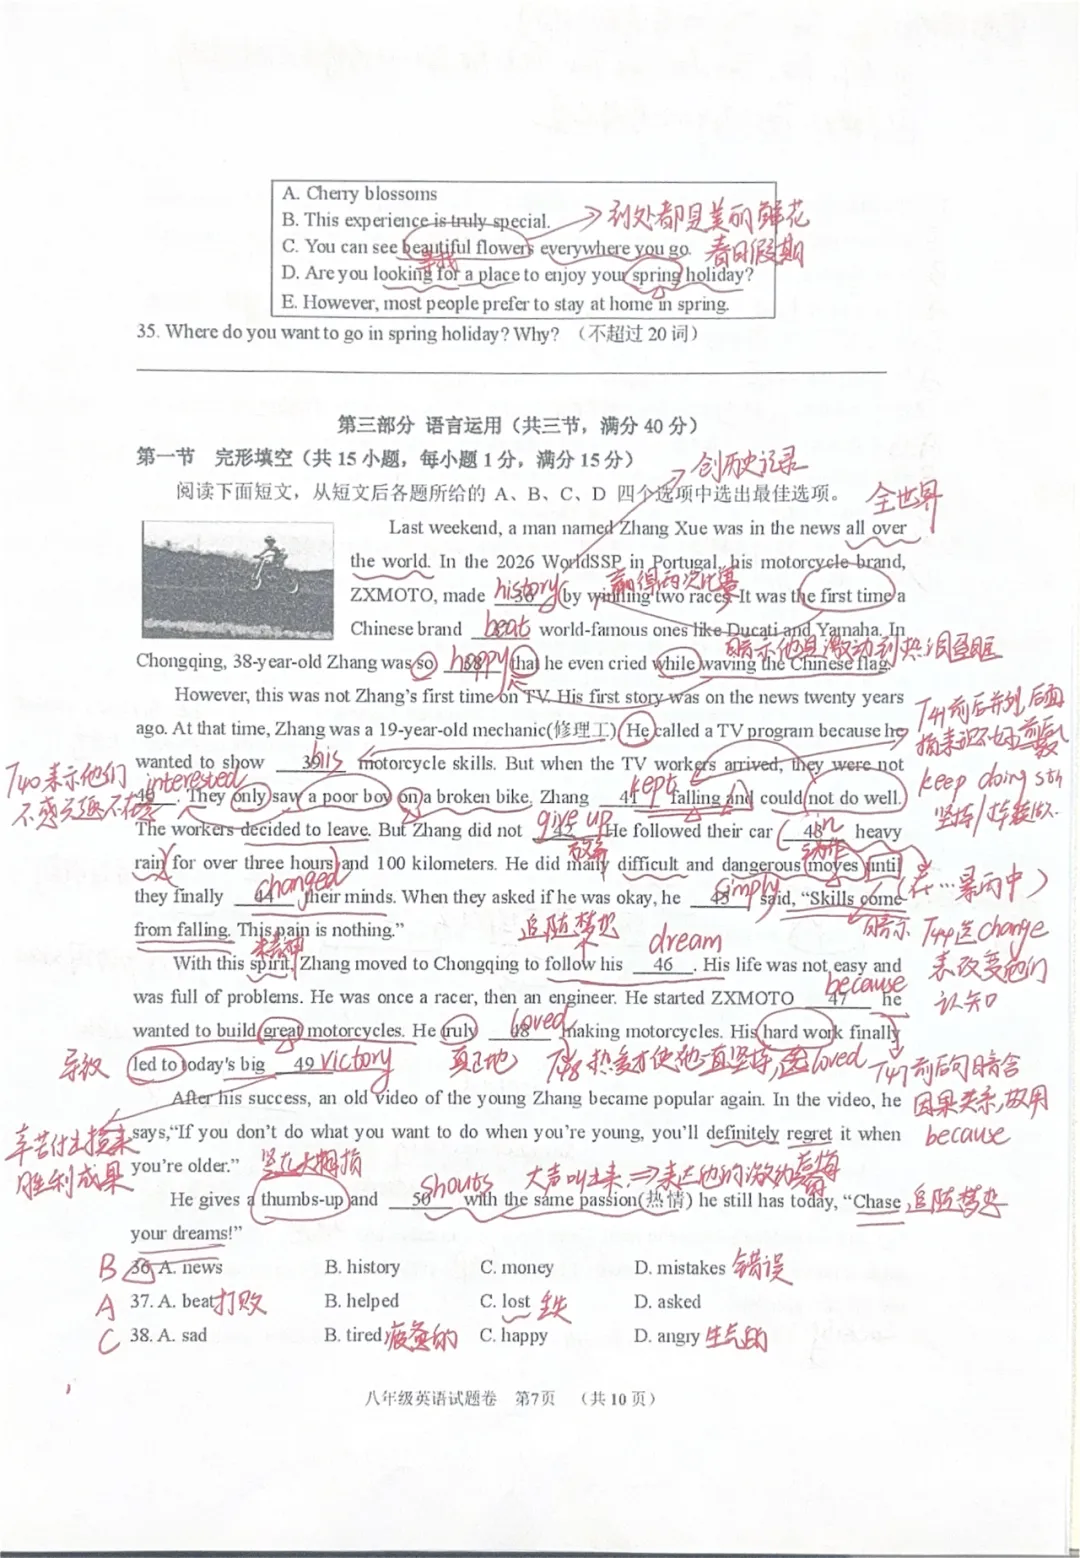 A. Cherry blossoms
B. This experience is truly special. 到处都是美丽鲜花
C. You can see beautiful flowers everywhere you go. 春日假期
寻找
D. Are you looking for a place to enjoy your spring holiday?
E. However, most people prefer to stay at home in spring.
35. Where do you want to go in spring holiday? Why? （不超过 20 词）
第三部分 语言运用（共三节，满分 40 分）
第一节 完形填空（共 15 小题，每小题 1 分，满分 15 分） 创历史记录
阅读下面短文，从短文后各题所给的 A、B、C、D 四个选项中选出最佳选项。 全世界
Last weekend, a man named Zhang Xue was in the news all over
the world. In the 2026 WorldSSP in Portugal, his motorcycle brand,
history 赢得两次比赛
ZXMOTO, made 36 by winning two races. It was the first time a
beat
Chinese brand 37 world-famous ones like Ducati and Yamaha. In
暗示他且激动到热泪盈眶
happy
Chongqing, 38-year-old Zhang was so 38 that he even cried while waving the Chinese flag.
However, this was not Zhang's first time on TV. His first story was on the news twenty years
ago. At that time, Zhang was a 19-year-old mechanic(修理工). He called a TV program because he
his
wanted to show 39 motorcycle skills. But when the TV workers arrived, they were not
T40表示他们不感兴趣
interested kept
40 . They only saw a poor boy on a broken bike. Zhang 41 falling and could not do well.
T41前后并列
keep doing sth
坚持/持续做.
give up in
The workers decided to leave. But Zhang did not 42 . He followed their car 43 heavy
放弃 动作
rain for over three hours and 100 kilometers. He did many difficult and dangerous moves until
(在…暴雨中)
changed simply
they finally 44 their minds. When they asked if he was okay, he 45 said, “Skills come
暗示T44选change
来改变他们认知
from falling. This pain is nothing.”
精神 追随梦想 dream
With this spirit, Zhang moved to Chongqing to follow his 46 . His life was not easy and
because
was full of problems. He was once a racer, then an engineer. He started ZXMOTO 47 he
loved
wanted to build great motorcycles. He truly 48 making motorcycles. His hard work finally
导致 victory 真正地 T48热爱才使他一直坚持,选loved
led to today's big 49
T47前后句暗含
因果关系,故用
because
After his success, an old video of the young Zhang became popular again. In the video, he
辛苦付出换来
胜利成果
says,“If you don't do what you want to do when you're young, you'll definitely regret it when
you're older.” 竖起大拇指
shouts 大声叫出来
He gives a thumbs-up and 50 with the same passion(热情) he still has today, “Chase 追随梦想
your dreams!”
B 36. A. news B. history C. money D. mistakes 错误
A 37. A. beat 打败 B. helped C. lost 失 D. asked
C 38. A. sad B. tired 疲惫的 C. happy D. angry 生气的
八年级英语试题卷 第7页 （共 10 页）